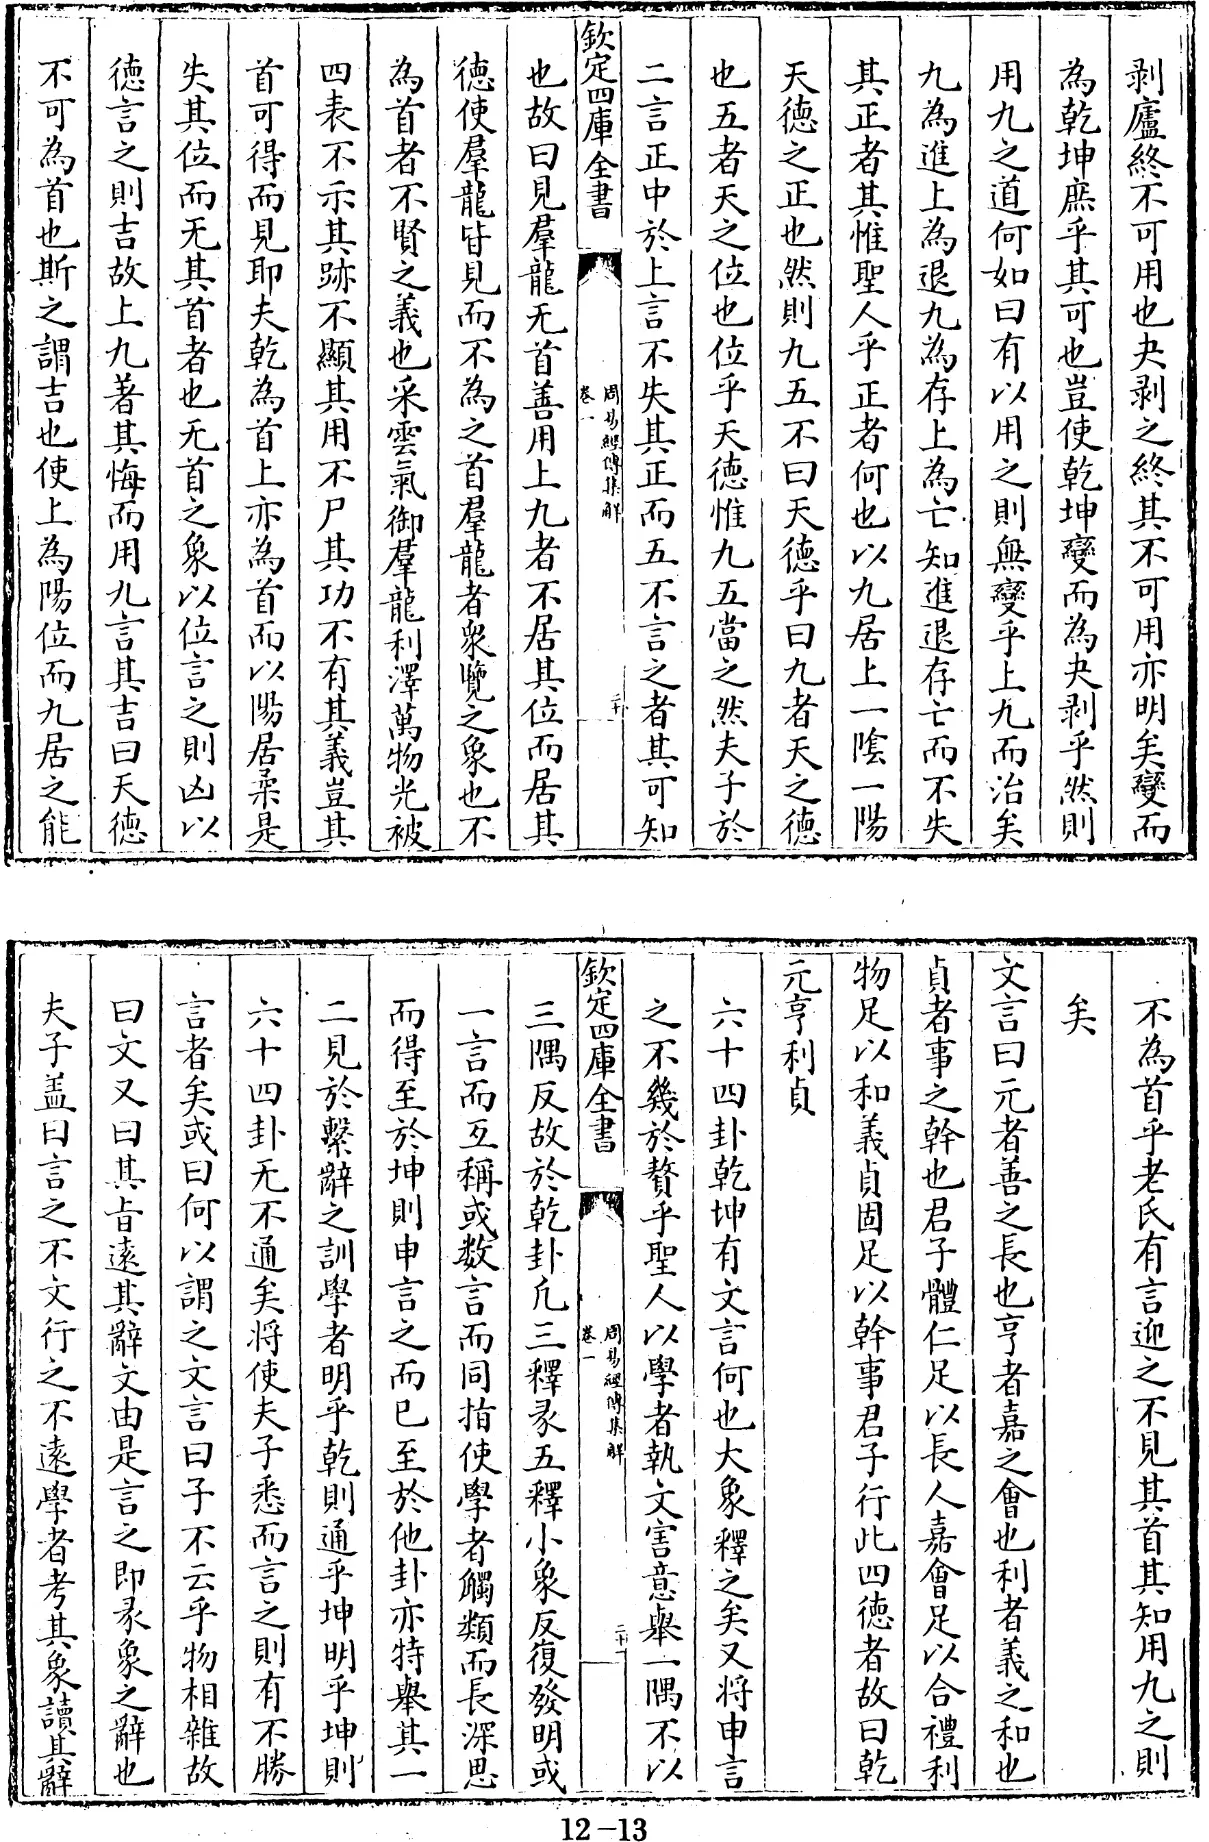 剥廬終不可用也夬剥之終其不可用亦明矣變而
為乾坤庶乎其可也豈使乾坤變而為夬剥乎然則
用九之道何如曰有以用之則無變乎上九而治矣
九為進上為退九為存上為亡知進退存亡而不失
其正者其惟聖人乎正者何也以九居上一陰一陽
天德之正也然則九五不曰天德乎曰九者天之德
也五者天之位也位乎天德惟九五當之然夫子於
二言正中於上言不失其正而五不言之者其可知
欽定四庫全書
周易經傳集解
卷一
二十
也故曰見羣龍无首善用上九者不居其位而居其
德使羣龍皆見而不為之首羣龍者衆覽之象也不
為首者不賢之義也采雲氣御羣龍利澤萬物光被
四表不示其跡不顯其用不尸其功不有其義豈其
首可得而見耶夫乾為首上亦為首而以陽居柔是
失其位而无其首者也无首之象以位言之則凶以
德言之則吉故上九著其悔而用九言其吉曰天德
不可為首也斯之謂吉也使上為陽位而九居之能
不為首乎老氏有言迎之不見其首其知用九之則
矣
文言曰元者善之長也亨者嘉之會也利者義之和也
貞者事之幹也君子體仁足以長人嘉會足以合禮利
物足以和義貞固足以幹事君子行此四德者故曰乾
元亨利貞
六十四卦乾坤有文言何也大象釋之矣又将申言
之不幾於贅乎聖人以學者執文害意舉一隅不以
欽定四庫全書
周易經傳集解
卷一
二十一
三隅反故於乾卦凢三釋彖五釋小象反復發明或
一言而互稱或数言而同指使學者觸類而長深思
而得至於坤則申言之而已至於他卦亦特舉其一
二見於繫辭之訓學者明乎乾則通乎坤明乎坤則
六十四卦无不通矣将使夫子悉而言之則有不勝
言者矣或曰何以謂之文言曰子不云乎物相雜故
曰文又曰其旨逺其辭文由是言之即彖象之辭也
夫子盖曰言之不文行之不逺學者考其象讀其辭
12-13